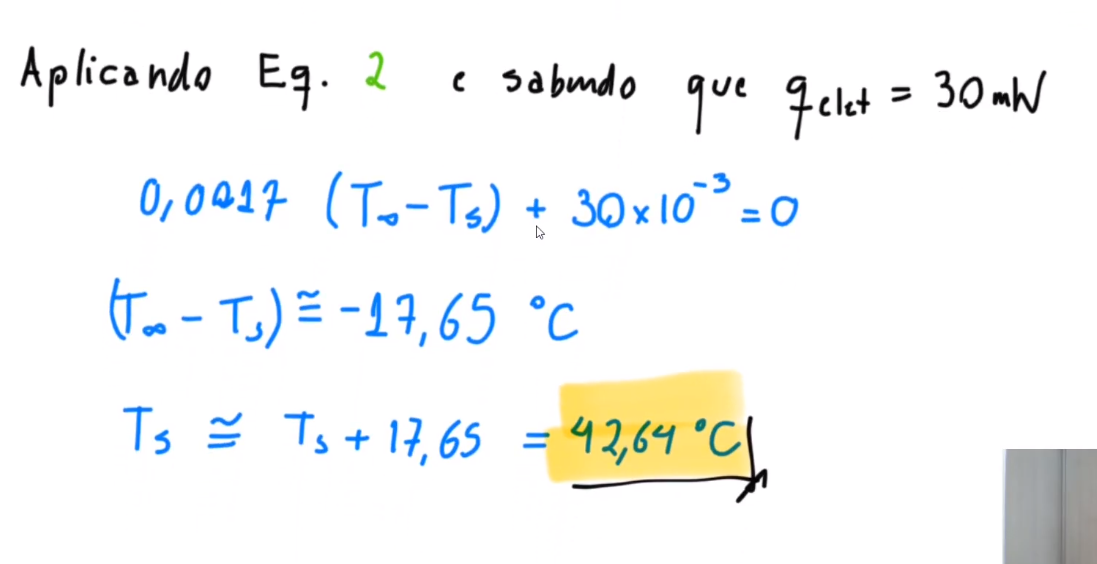 Aplicando Eq. 2 e sabendo que qelet = 30 mW
0,0017 (T∞ - Ts) + 30 x 10⁻³ = 0
(T∞ - Ts) ≅ -17,65 °C
Ts ≅ Ts + 17,65 = 42,64 °C